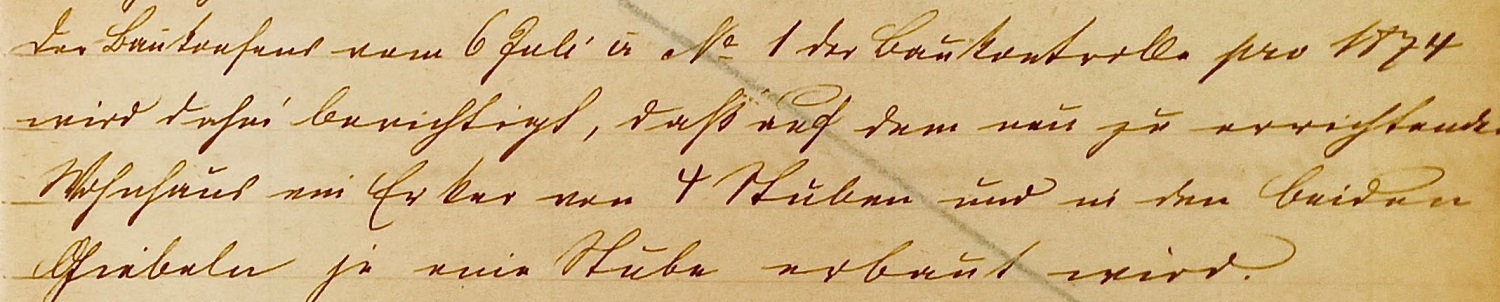 Der Baukonsens vom 6 Juli cr № 1 der Baukontrolle pro 1874
wird dahin berichtigt, daß auf dem neu zu errichtenden
Wohnhaus ein Erker von 4 Stuben und in den beiden
Giebeln je eine Stube erbaut wird.